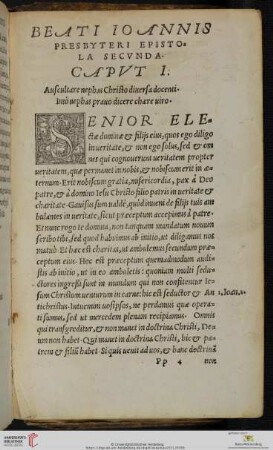 BEATI IOANNIS
PRESBYTERI EPISTO-
LA SECVNDA.
CAPVT I.
Auscultare nephas Christo diuersa docenti.
Imò nephas prauo dicere chare uiro.
SENIOR ELE-
ctæ dominæ & filijs eius, quos ego diligo
in ueritate, & non ego solus, sed & om
nes qui cognouerunt ueritatem propter
ueritatem, quæ permanet in nobis, & nobiscum erit in æ-
ternum. Erit nobiscum gratia, misericordia, pax à Deo
patre, & à domino Iesu Christo filio patris in ueritate &
charitate. Gauisus sum ualdè, quòd inueni de filijs tuis am
bulantes in ueritate, sicut præceptum accepimus à patre.
Et nunc rogo te domina, non tanquam mandatum nouum
scribens tibi, sed quod habuimus ab initio, ut diligamus nos
mutuò. Et hæc est charitas, ut ambulemus secundum præ-
ceptum eius. Hoc est præceptum quemadmodum audi-
stis ab initio, ut in eo ambuletis: quoniam multi sedu-
ctores ingressi sunt in mundum qui non confitentur Ie-
sum Christum uenturum in carne: hic est seductor & An
tichristus. Intuemini uosipsos, ne perdamus quæ opera-
ti sumus, sed ut mercedem plenam recipiamus. Omnis
qui transgreditur, & non manet in doctrina Christi, De
um non habet. Qui manet in doctrina Christi, hic & pa-
trem & filiũ habet. Si quis uenit ad uos, & hanc doctrinã
Pp 4 non
1. Ioan. 4.
© Universitätsbibliothek Heidelberg